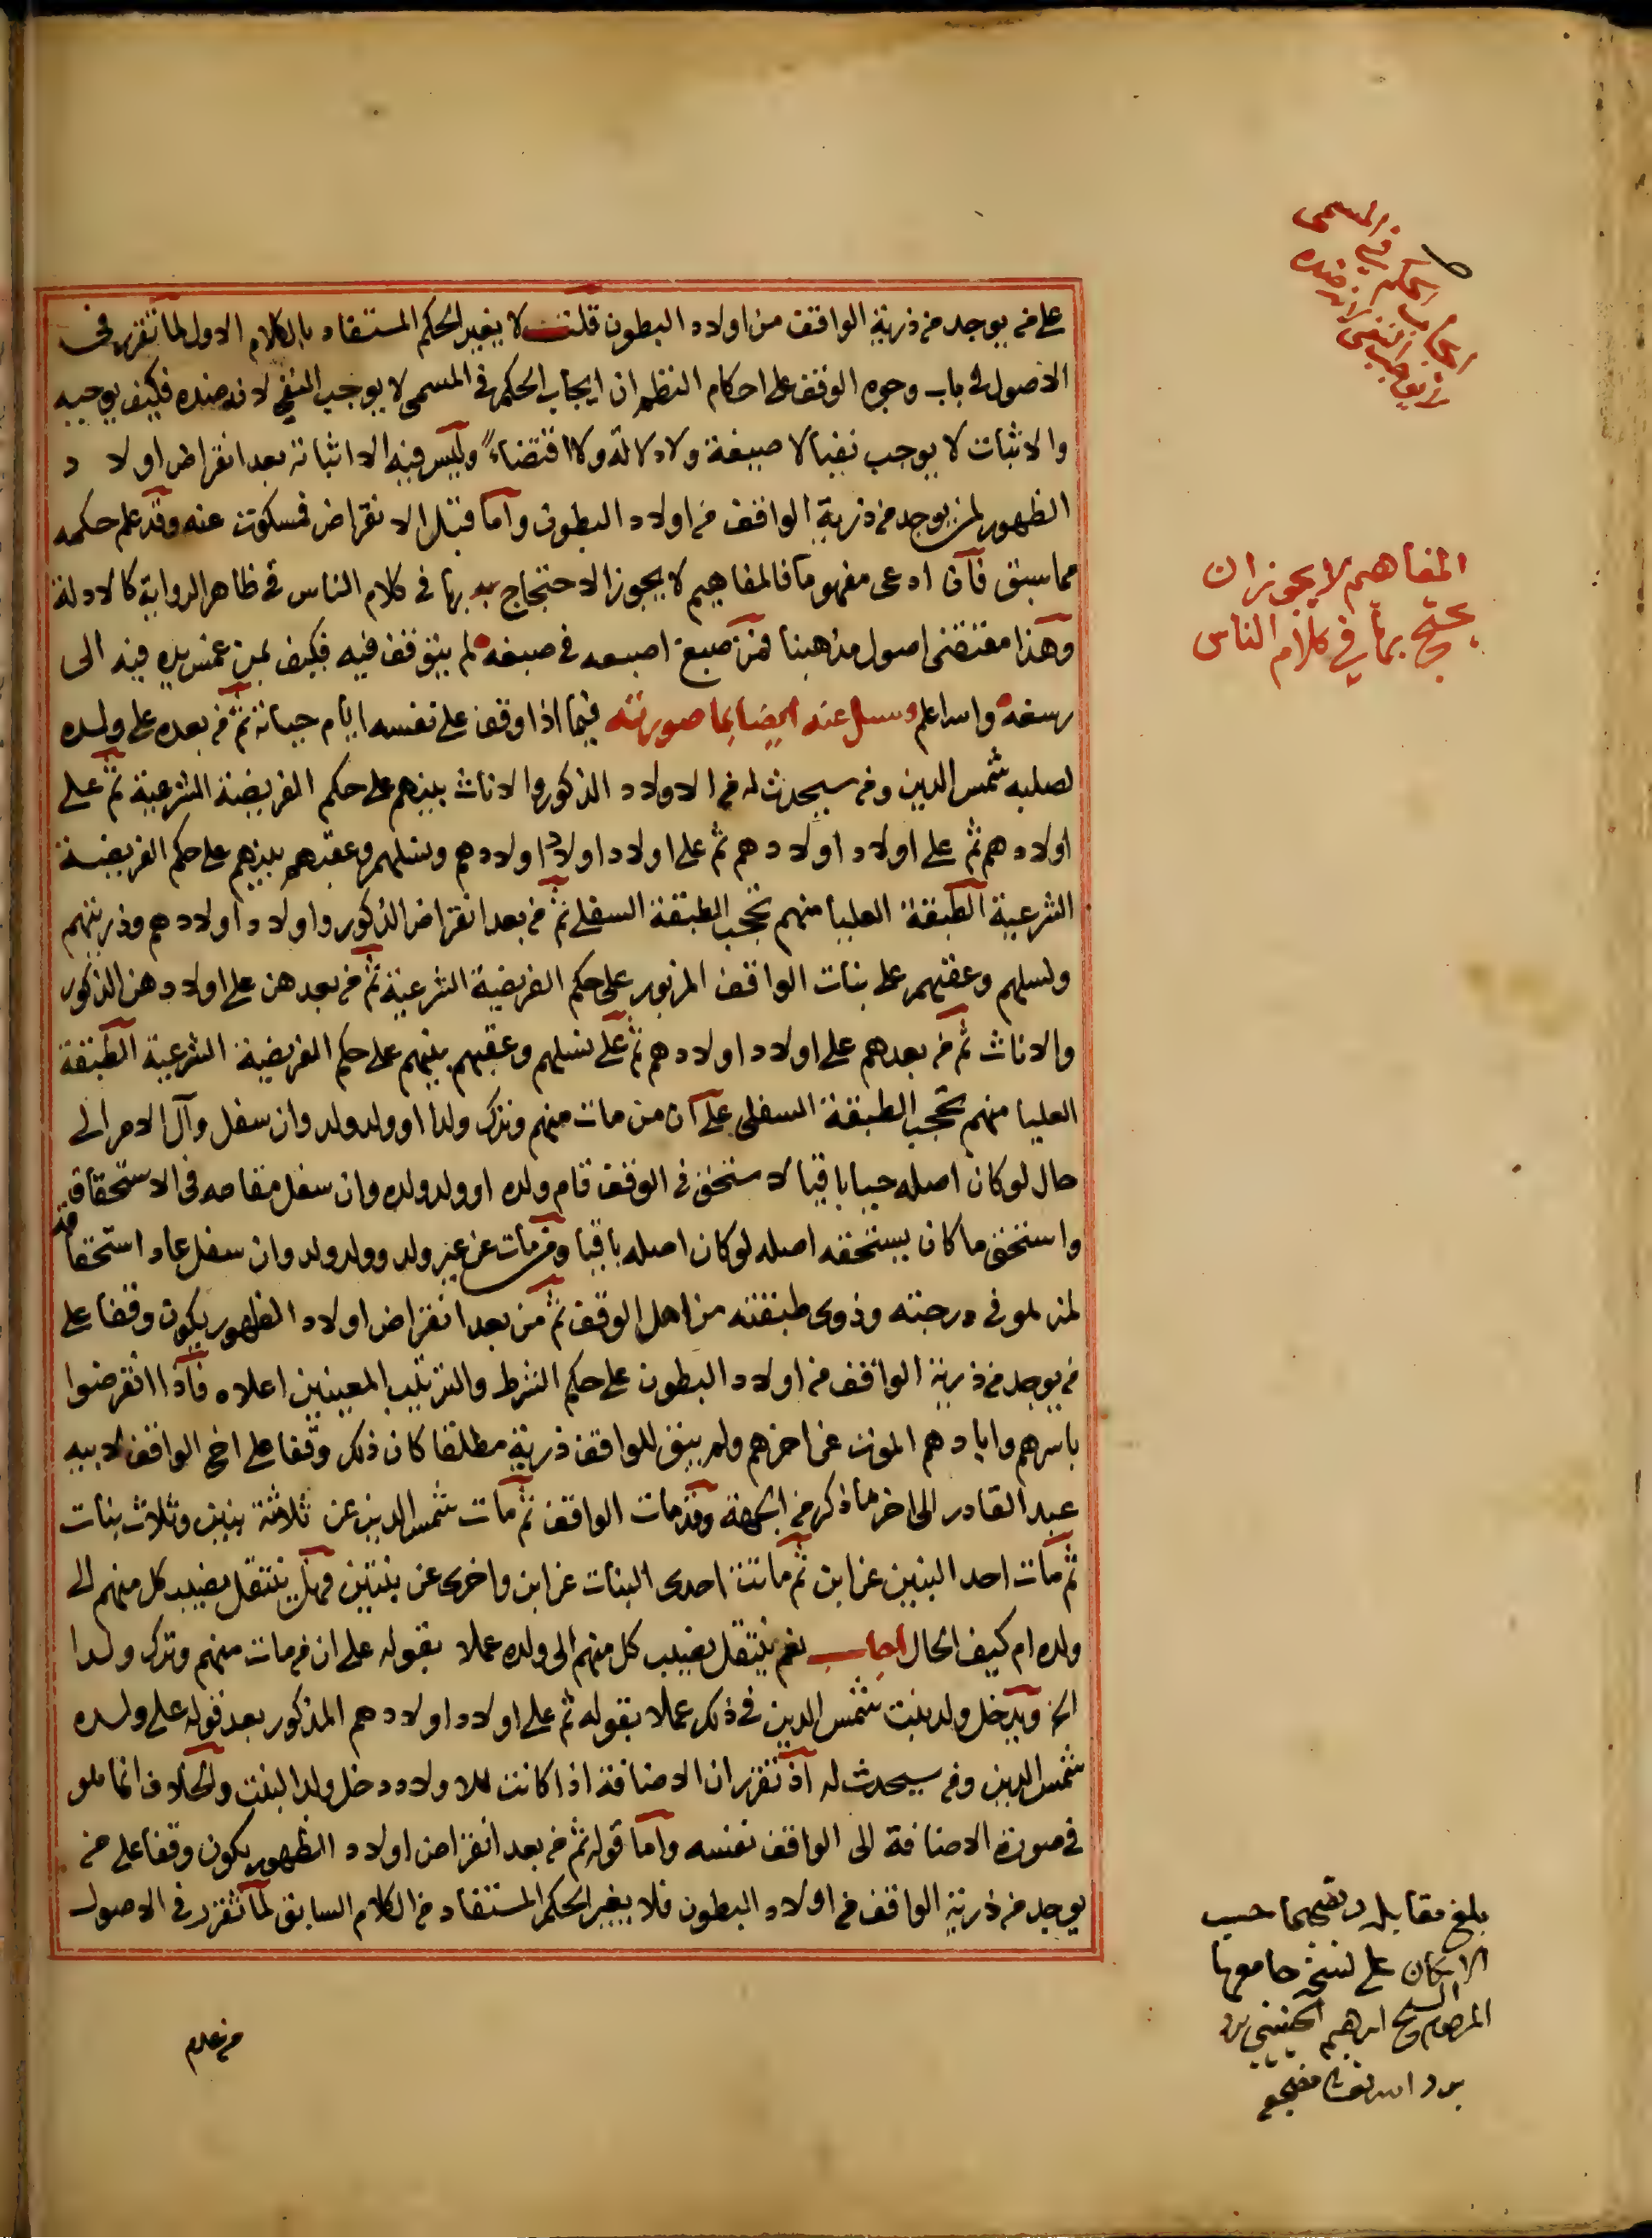 على من يوجد من ذرية الواقف من اولاد البطون قلت لا يغير الحكم المستفاد بالكلام الاول لما تقرر في
الاصول في باب وجوه الوقف على احكام النظم ان ايجاب الحكم في المسمى لا يوجب النفي لانه ضده فكيف يوجبه
والاثبات لا يوجب نفيا لا صيغة ولا دلالة ولا اقتضاء وليس فيه الا اثباته بعد انقراض اولاد
الظهور لمن يوجد من ذرية الواقف من اولاد البطون واما قبل الانقراض فمسكوت عنه وقد علم حكمه
مما سبق فان ادعى مفهوما فالمفاهيم لا يجوز الاحتجاج بها في كلام الناس في ظاهر الرواية كالادلة
وهذا مقتضى اصول مذهبنا فمن صبغ اصبعه في صبغه لم يتوقف فيه فكيف بمن غمس يده فيه الى
رسغه والله اعلم وسئل عنه ايضا بما صورته فيما اذا وقف على نفسه ايام حياته ثم من بعده على ولده
لصلبه شمس الدين ومن سيحدث له من الاولاد الذكور والاناث بينهم على حكم الفريضة الشرعية ثم على
اولادهم ثم على اولاد اولادهم ثم على اولاد اولاد اولادهم ونسلهم وعقبهم بينهم على حكم الفريضة
الشرعية الطبقة العليا منهم تحجب الطبقة السفلى ثم من بعد انقراض الذكور واولاد اولادهم وذريتهم
ونسلهم وعقبهم على بنات الواقف المزبور على حكم الفريضة الشرعية ثم من بعدهن على اولادهن الذكور
والاناث ثم من بعدهم على اولاد اولادهم ثم على نسلهم وعقبهم بينهم على حكم الفريضة الشرعية الطبقة
العليا منهم تحجب الطبقة السفلى على ان من مات منهم وترك ولدا او ولد ولد وان سفل وآل الامر الى
حال لو كان اصله حيا باقيا لاستحق في الوقف قام ولده او ولد ولده وان سفل مقامه في الاستحقاق
واستحق ما كان يستحقه اصله لو كان اصله باقيا ومن مات عن غير ولد وولد ولد وان سفل عاد استحقاقه
لمن هو في درجته وذوي طبقته من اهل الوقف ثم من بعد انقراض اولاد الظهور يكون وقفا على
من يوجد من ذرية الواقف من اولاد البطون على حكم الشرط والترتيب المعينين اعلاه فاذا انقرضوا
باسرهم وابادهم الموت عن اخرهم ولم يبق للواقف ذرية مطلقا كان ذلك وقفا على اخ الواقف لابيه
عبد القادر الى اخر ما ذكر من الجهة وقد مات الواقف ثم مات شمس الدين عن ثلاثة بنين وثلاث بنات
ثم مات احد البنين عن ابن ثم ماتت احدى البنات عن ابن واخرى عن بنتين فهل ينتقل نصيب كل منهم الى
ولده ام كيف الحال اجاب نعم ينتقل نصيب كل منهم الى ولده عملا بقوله على ان من مات منهم وترك ولدا
الخ ويدخل ولد بنت شمس الدين في ذلك عملا بقوله ثم على اولاد اولادهم المذكور بعد قوله على ولده
شمس الدين ومن سيحدث له اذ تقرر ان الاضافة اذا كانت للاولاد دخل ولد البنت والخلاف انما هو
في صورة الاضافة الى الواقف نفسه واما قوله ثم من بعد انقراض اولاد الظهور يكون وقفا على من
يوجد من ذرية الواقف من اولاد البطون فلا يغير الحكم المستفاد من الكلام السابق لما تقرر في الاصول
من عدم
ايجاب الحكم في المسمى
لا يوجب النفي لانه ضده
المفاهيم لا يجوز ان
يحتج بها في كلام الناس
بلغ مقابلة وتصحيحا حسب
الامكان على نسخة جامعها
المرحوم الشيخ ابرهيم الجنيني
برد الله تعالى مضجعه